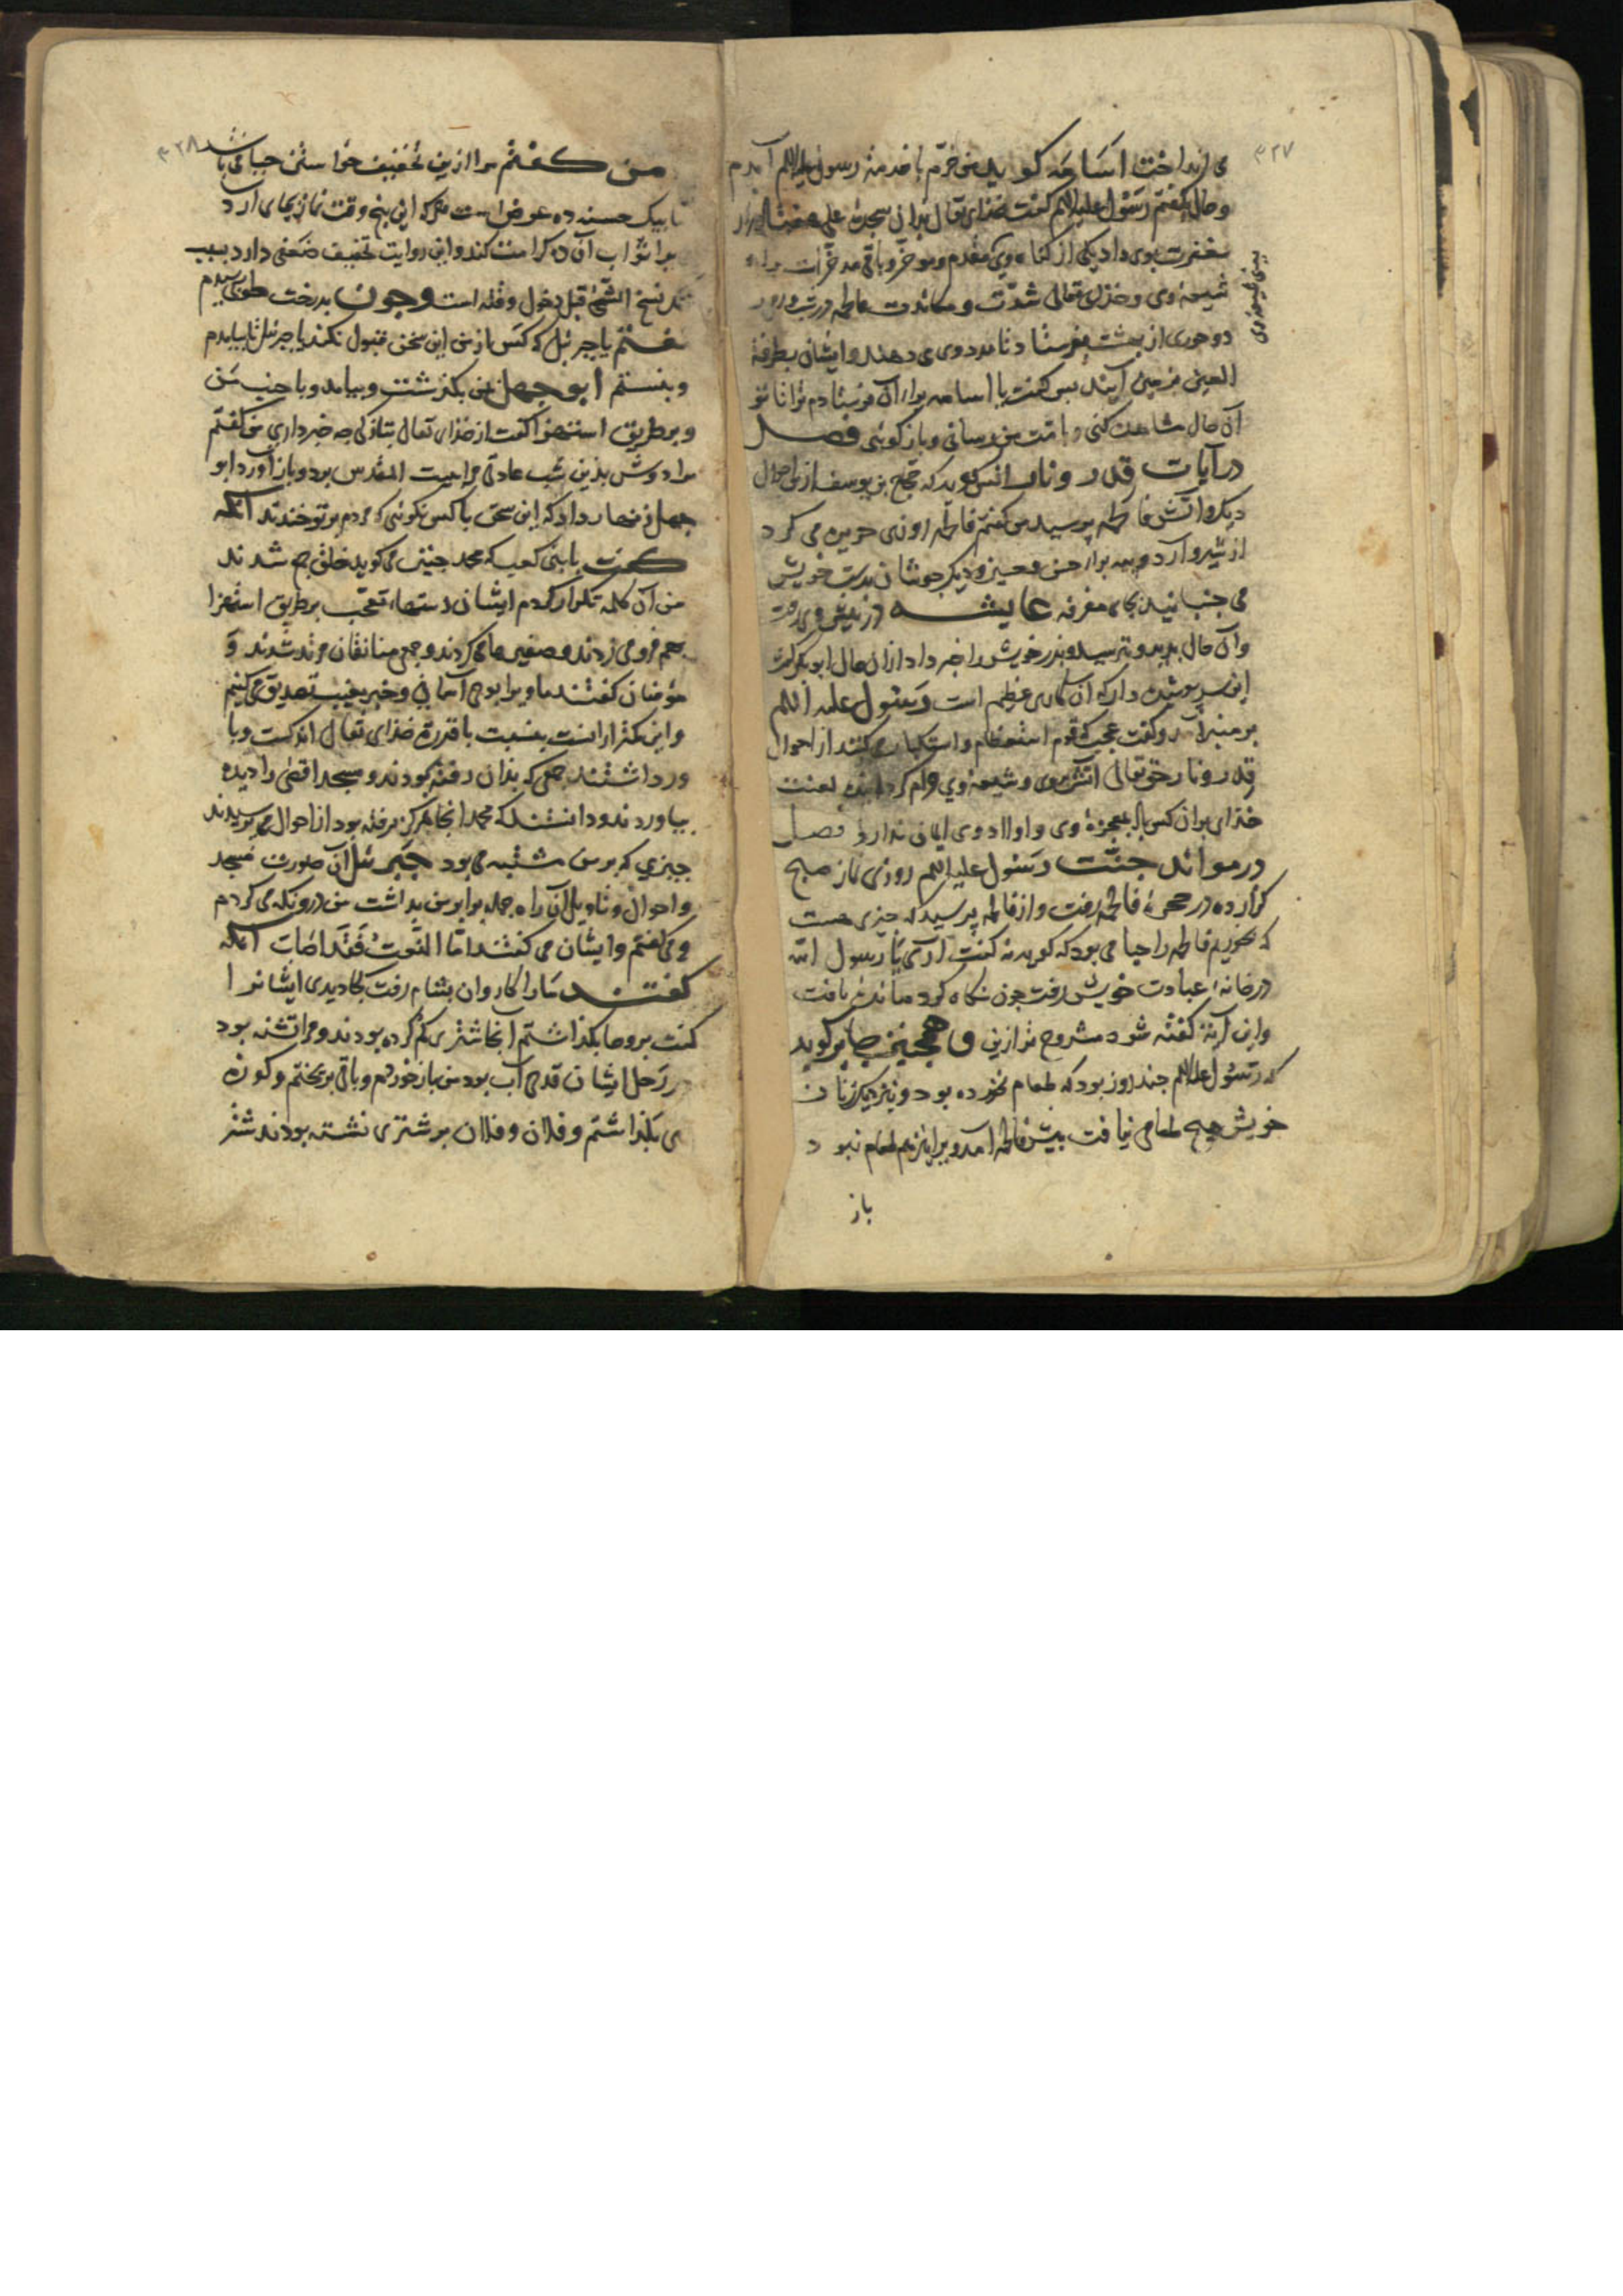 ۳۲۷
می انداخت اسامه کوید من خرّم با خدمة رسول علیه السلم آمدم
و حال بکفتم رسول علیه السلم کفت خدای تعالی بدان سجدة علی
مغفرت بوی داد یکی از کناه وی مقدم و موخر و باقی مدخر است برای
شیعۀ وی و خدای تعالی شدّت و ماندت فاطمه
دو حوری از بهشت بفرستاد تا مدد وی می دهند و ایشان بطرفة
العین بزمین آیند بس کفت یا اسامه برای آن فرستادم ترا تا تو
آن حال مشاهده کنی و بامّت من رسانی و باز کوئی فصل
در آیات قدر و نار انس کوید که حجاج بن یوسف از من احوال
دیک و آتش فاطمه پرسید من کفتم فاطمه روزی حریره می کرد
از شیر و آرد و بیه برای حسن و حسین و دیک جوشان بدست خویش
می جنبانید بجای مغرفه عایشه در پیش وی رفت
و آن حال بدید و بترسید و بذر خویش را خبر داد از آن حال ابوبکر کفت
این سر پوشیده دار که آن کاری عظیم است رسول علیه السلم
بر منبر آمد و کفت عجب که قوم استعظام و استکبار می کنند از احوال
قدر و نار حق تعالی آتش بر وی و شیعۀ وی حرام کردانیده لعنت
خدای بر آن کس باد که بمعجزۀ وی و اولاد وی ایمان ندارد فصل
در موائد جنّت رسول علیه السلم روزی نماز صبح
کزارده در حجرۀ فاطمه رفت و از فاطمه پرسید که چیزی هست
که بخوریم فاطمه را حیا می بود که کوید نه کفت آری یا رسول الله
در خانۀ عبادت خویش رفت چون نکاه کرد مائده یافت
و این آینه کفته شود مشروح تر ازین و همچنین جابر کوید
که رسول علیه السلم چند روز بود که طعام نخورده بود و بنزدیک زنان
خویش هیچ طعامی نیافت پیش فاطمه آمد و برای نیز هم طعام نبود
باز
۳۲۸
من کفتم مرا ازین تخفیف خواستن حیا می باشد
تا بیک حسنه ده عوض است هر که این پنج وقت نماز بجای آرد
مرا ثواب آن ده کرامت کند و این روایت تخفیف ضعفی دارد بسبب
نسخ الشیٔ قبل دخول وقته است و چون بدرخت طوبی رسیدم
کفتم یا جبرئیل که کس از من این سخن قبول نکند یا جبرئیل تا بیامدم
و بنشستم ابو جهل بمن بکذشت و بیامد و با جنب من
و بر طریق استهزا کفت از خدای تعالی تازکی چه خبر داری من کفتم
مرا دوش بذین شب عادتی مرا بیت المقدس برد و باز آورد ابو
جهل زنهار داد که این سخن با کس نکوئی که مردم بر تو خندند آنکه
کفت یا بنی کعب که محمد چنین می کوید خلق جمع شدند
من آن کلمه تکرار کردم ایشان دستها تعجب بر طریق استهزا
بهم فرو می زدند و صفیرها می کردند و جمعی منافقان مرتد شدند و
مؤمنان کفتند ما ویرا بوحی آسمانی و خبر بغیب تصدیق می کنیم
و این کمتر از آنست بنسبت با قدرت خدای تعالی اندکست و با
ور داشتند جمعی که بذان رفته بودند و مسجد اقصی را دیده
بیاوردند و دانستند که محمد آنجا هرکز نرفته بود از احوال می پرسیدند
چیزی که بر من مشتبه می بود جبرئیل آن صورت مسجد
و احوال و تاویل آن راه جمله برابر من بداشت من در و نکه می کردم
و می کفتم و ایشان می کفتند امّا النّعوت فقد اصاب آنکه
کفتند ما را کاروان بشام رفت کجا دیدی ایشانرا
کفت بروحا بکذاشتم آنجا شتری کم کرده بودند و مرا تشنه بود
در رحل ایشان قدحی آب بود من باز خوردم و باقی بریختم و کوزه
می بکذاشتم و فلان و فلان بر شتری نشسته بودند شتر